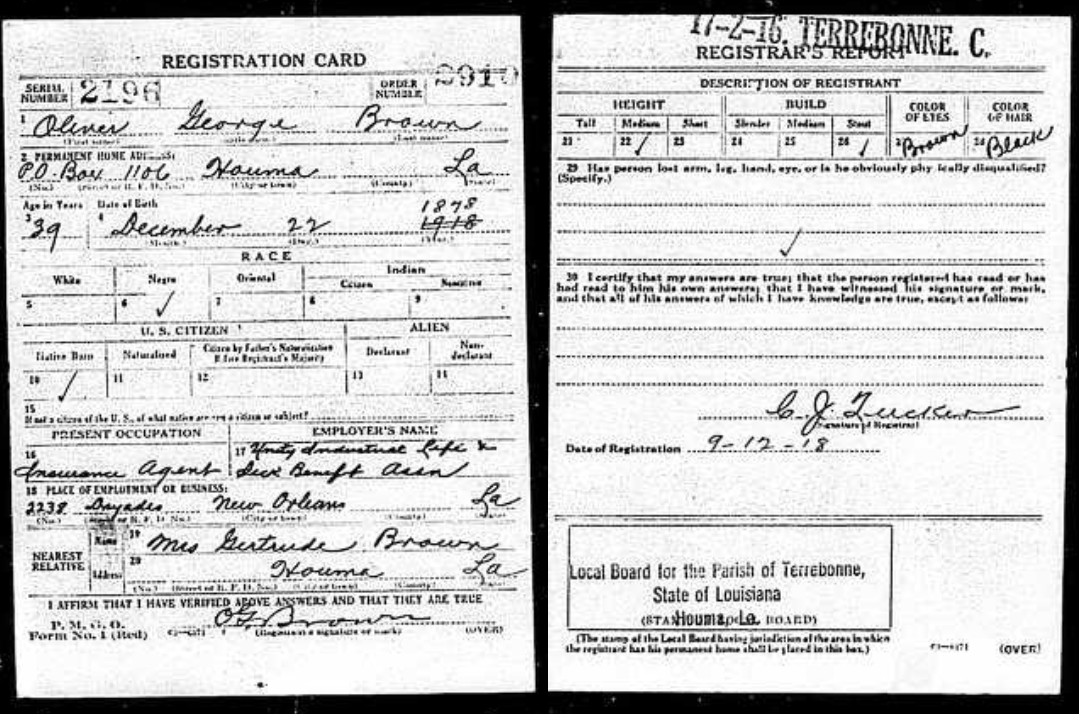 REGISTRATION CARD
SERIAL NUMBER 2196 ORDER NUMBER
1 Oliver George Brown
(First name) (Middle name) (Last name)
2 PERMANENT HOME ADDRESS:
P.O. Box 1106 Houma La
(No.) (Street or R. F. D. No.) (City or town) (County) (State)
Age in Years Date of Birth
3 39 4 December 22 1878 1918
(Month.) (Day.) (Year.)
RACE
White Negro Oriental Indian
Citizen Noncitizen
5 6 ✓ 7 8 9
U. S. CITIZEN ALIEN
Native Born Naturalized Citizen by Father's Naturalization Before Registrant's Majority Declarant Non-declarant
10 ✓ 11 12 13 14
15
If not a citizen of the U. S., of what nation are you a citizen or subject?
PRESENT OCCUPATION EMPLOYER'S NAME
16 Insurance Agent 17 Unity Industrial Life & Sick Benefit Assn
18 PLACE OF EMPLOYMENT OR BUSINESS:
2238 Dryades New Orleans La
(No.) (Street or R. F. D. No.) (City or town) (County) (State)
NEAREST RELATIVE Name 19 Mrs Gertrude Brown
Address 20 Houma La
(No.) (Street or R. F. D. No.) (City or town) (County) (State)
I AFFIRM THAT I HAVE VERIFIED ABOVE ANSWERS AND THAT THEY ARE TRUE
P. M. G. O.
Form No. 1 (Red) O G Brown
(Registrant's signature or mark) (OVER)
17-2-16. TERREBONNE. C.
REGISTRAR'S REPORT
DESCRIPTION OF REGISTRANT
HEIGHT BUILD COLOR OF EYES COLOR OF HAIR
Tall Medium Short Slender Medium Stout
21 22 ✓ 23 24 25 26 ✓ 27 Brown 28 Black
29 Has person lost arm, leg, hand, eye, or is he obviously physically disqualified?
(Specify.)
✓
30 I certify that my answers are true; that the person registered has read or has
had read to him his own answers; that I have witnessed his signature or mark,
and that all of his answers of which I have knowledge are true, except as follows:
C. J. Tucker
(Signature of Registrar)
Date of Registration 9-12-18
Local Board for the Parish of Terrebonne,
State of Louisiana
Houma, La.
(STAMP OF LOCAL BOARD)
(The stamp of the Local Board having jurisdiction of the area in which
the registrant has his permanent home shall be placed in this box.)
(OVER)